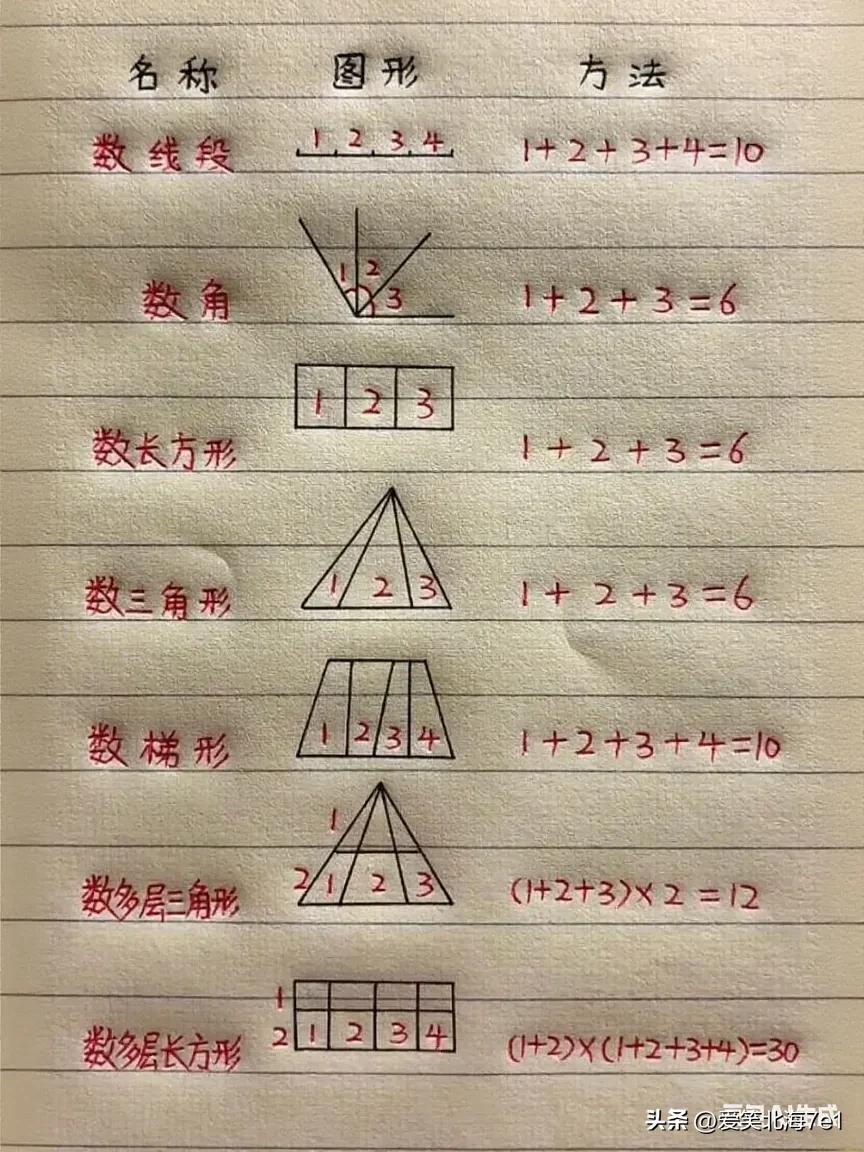 名称 图形 方法
数线段 1 2 3 4 1+2+3+4=10
数角 1 2 3 1+2+3=6
数长方形 1 2 3 1+2+3=6
数三角形 1 2 3 1+2+3=6
数梯形 1 2 3 4 1+2+3+4=10
1
数多层三角形 2 1 2 3 (1+2+3)×2=12
1
数多层长方形 2 1 2 3 4 (1+2)×(1+2+3+4)=30
头条 @爱笑北海7e1